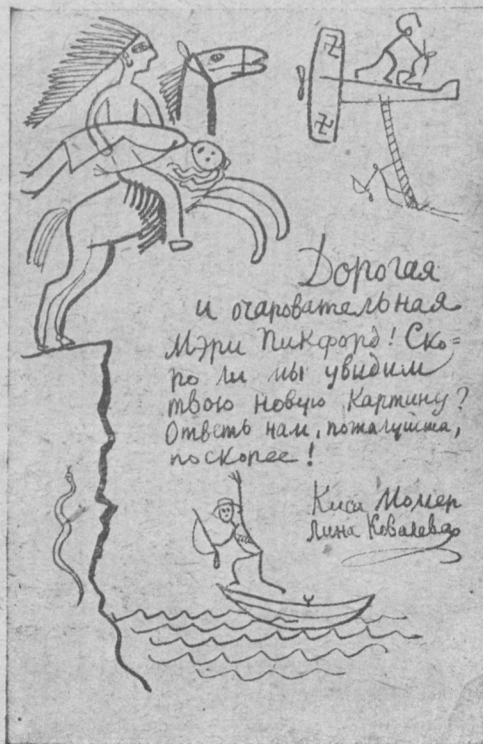 Дорогая
и очаровательная
Мэри Пикфорд! Ско=
ро ли мы увидим
твою новую картину?
Ответь нам, пожалуйста,
поскорее!
Киса Момер
Лина Ковалева